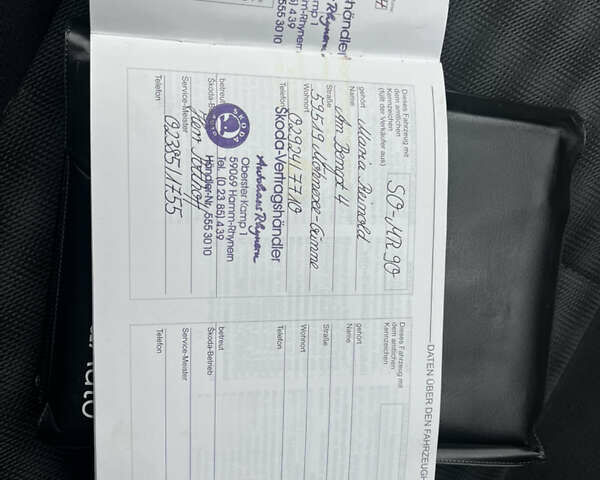 DATEN ÜBER DEN FAHRZEUGH
Dieses Fahrzeug mit
dem amtlichen
Kennzeichen
(füllt der Verkäufer aus)
SO-MR 90
gehört
Name
Maria Reinold
Straße
Am Bempt 4
Wohnort
59519 Möhnesee-Günne
Telefon
02924/7710
Skoda-Vertragshändler
Autohaus Rhynern
Oberster Kamp 1
59069 Hamm-Rhynern
Tel. (0 23 85) 4 39
Händler-Nr. 555 3010
SKODA
betreut
Skoda-B
Service-Meister
Herr
Telefon
02385/1755
Dieses Fahrzeug mit
dem amtlichen
Kennzeichen
gehört
Name
Straße
Wohnort
Telefon
betreut
Skoda-Betrieb
Service-Meister
Telefon
händler
Rhynern
mp 1
m-Rhynern
85) 4 39
555 3010